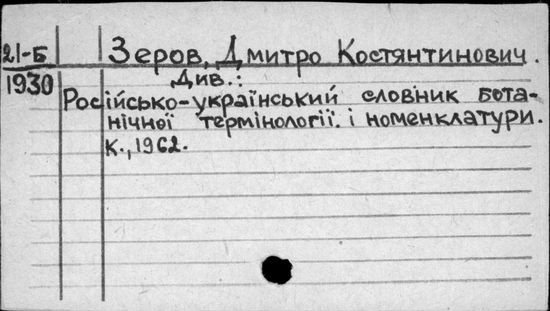 21-Б
1930
Зеров, Дмитро Костянтинович.
Див.:
Російсько-український словник бота-
нічної термінології і номенклатури.
К., 1962.